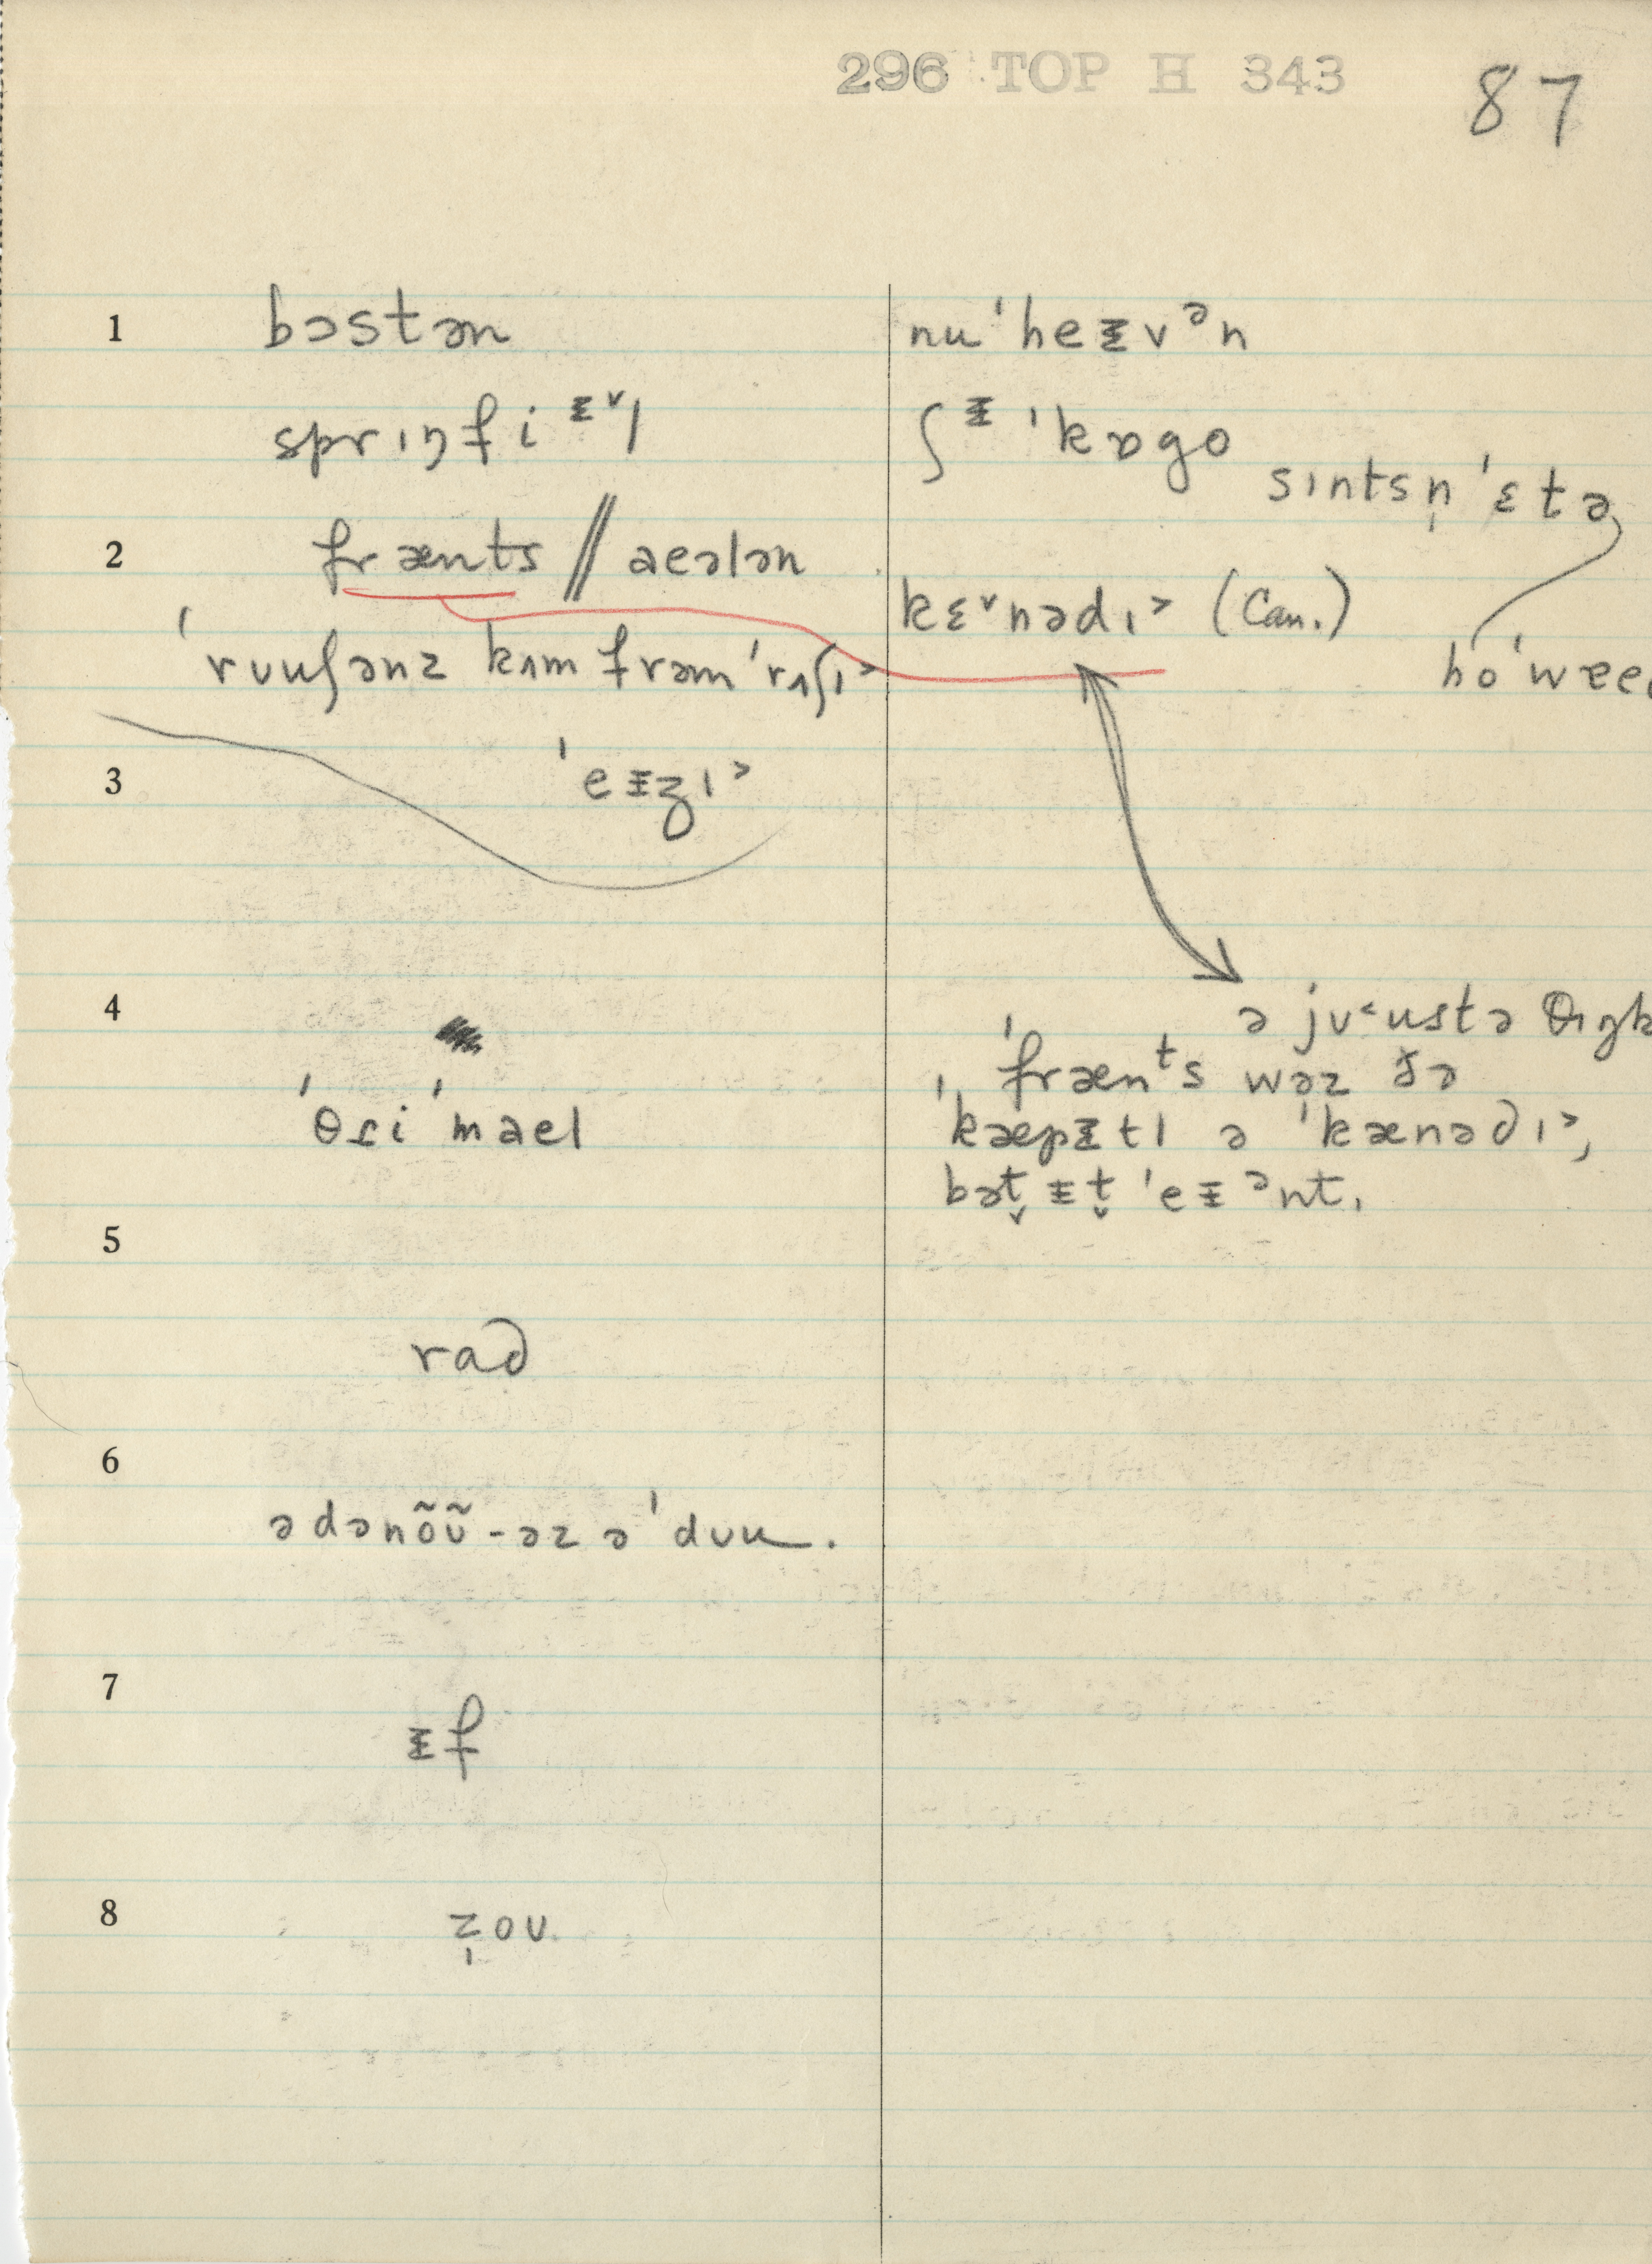 296 TOP H 343
87
1 bɔstən
sprıŋfiᵻ˅l
2 frænts // aeələn
ˈrʊuʃənz kʌm frəm ˈrʌʃı˃
3 ˈeᵻʒı˃
4
ˈθri ˈmael
5
rad
6
ədənõʊ̃-əz əˈdʊu.
7
ᵻf
8
z̩oʊ
nuˈheᵻvᵊn
ʃᵻˈkɒgo
sıntsn̩ˈɛtə
kɛ˅nədı˃ (Can.)
ə jʊ˂ustə θıŋk
ˈfrænᵗs wəz ðə
ˈkæpᵻtl ə ˈkænədı˃,
bət̬ ᵻt̬ ˈeᵻᵊnt.